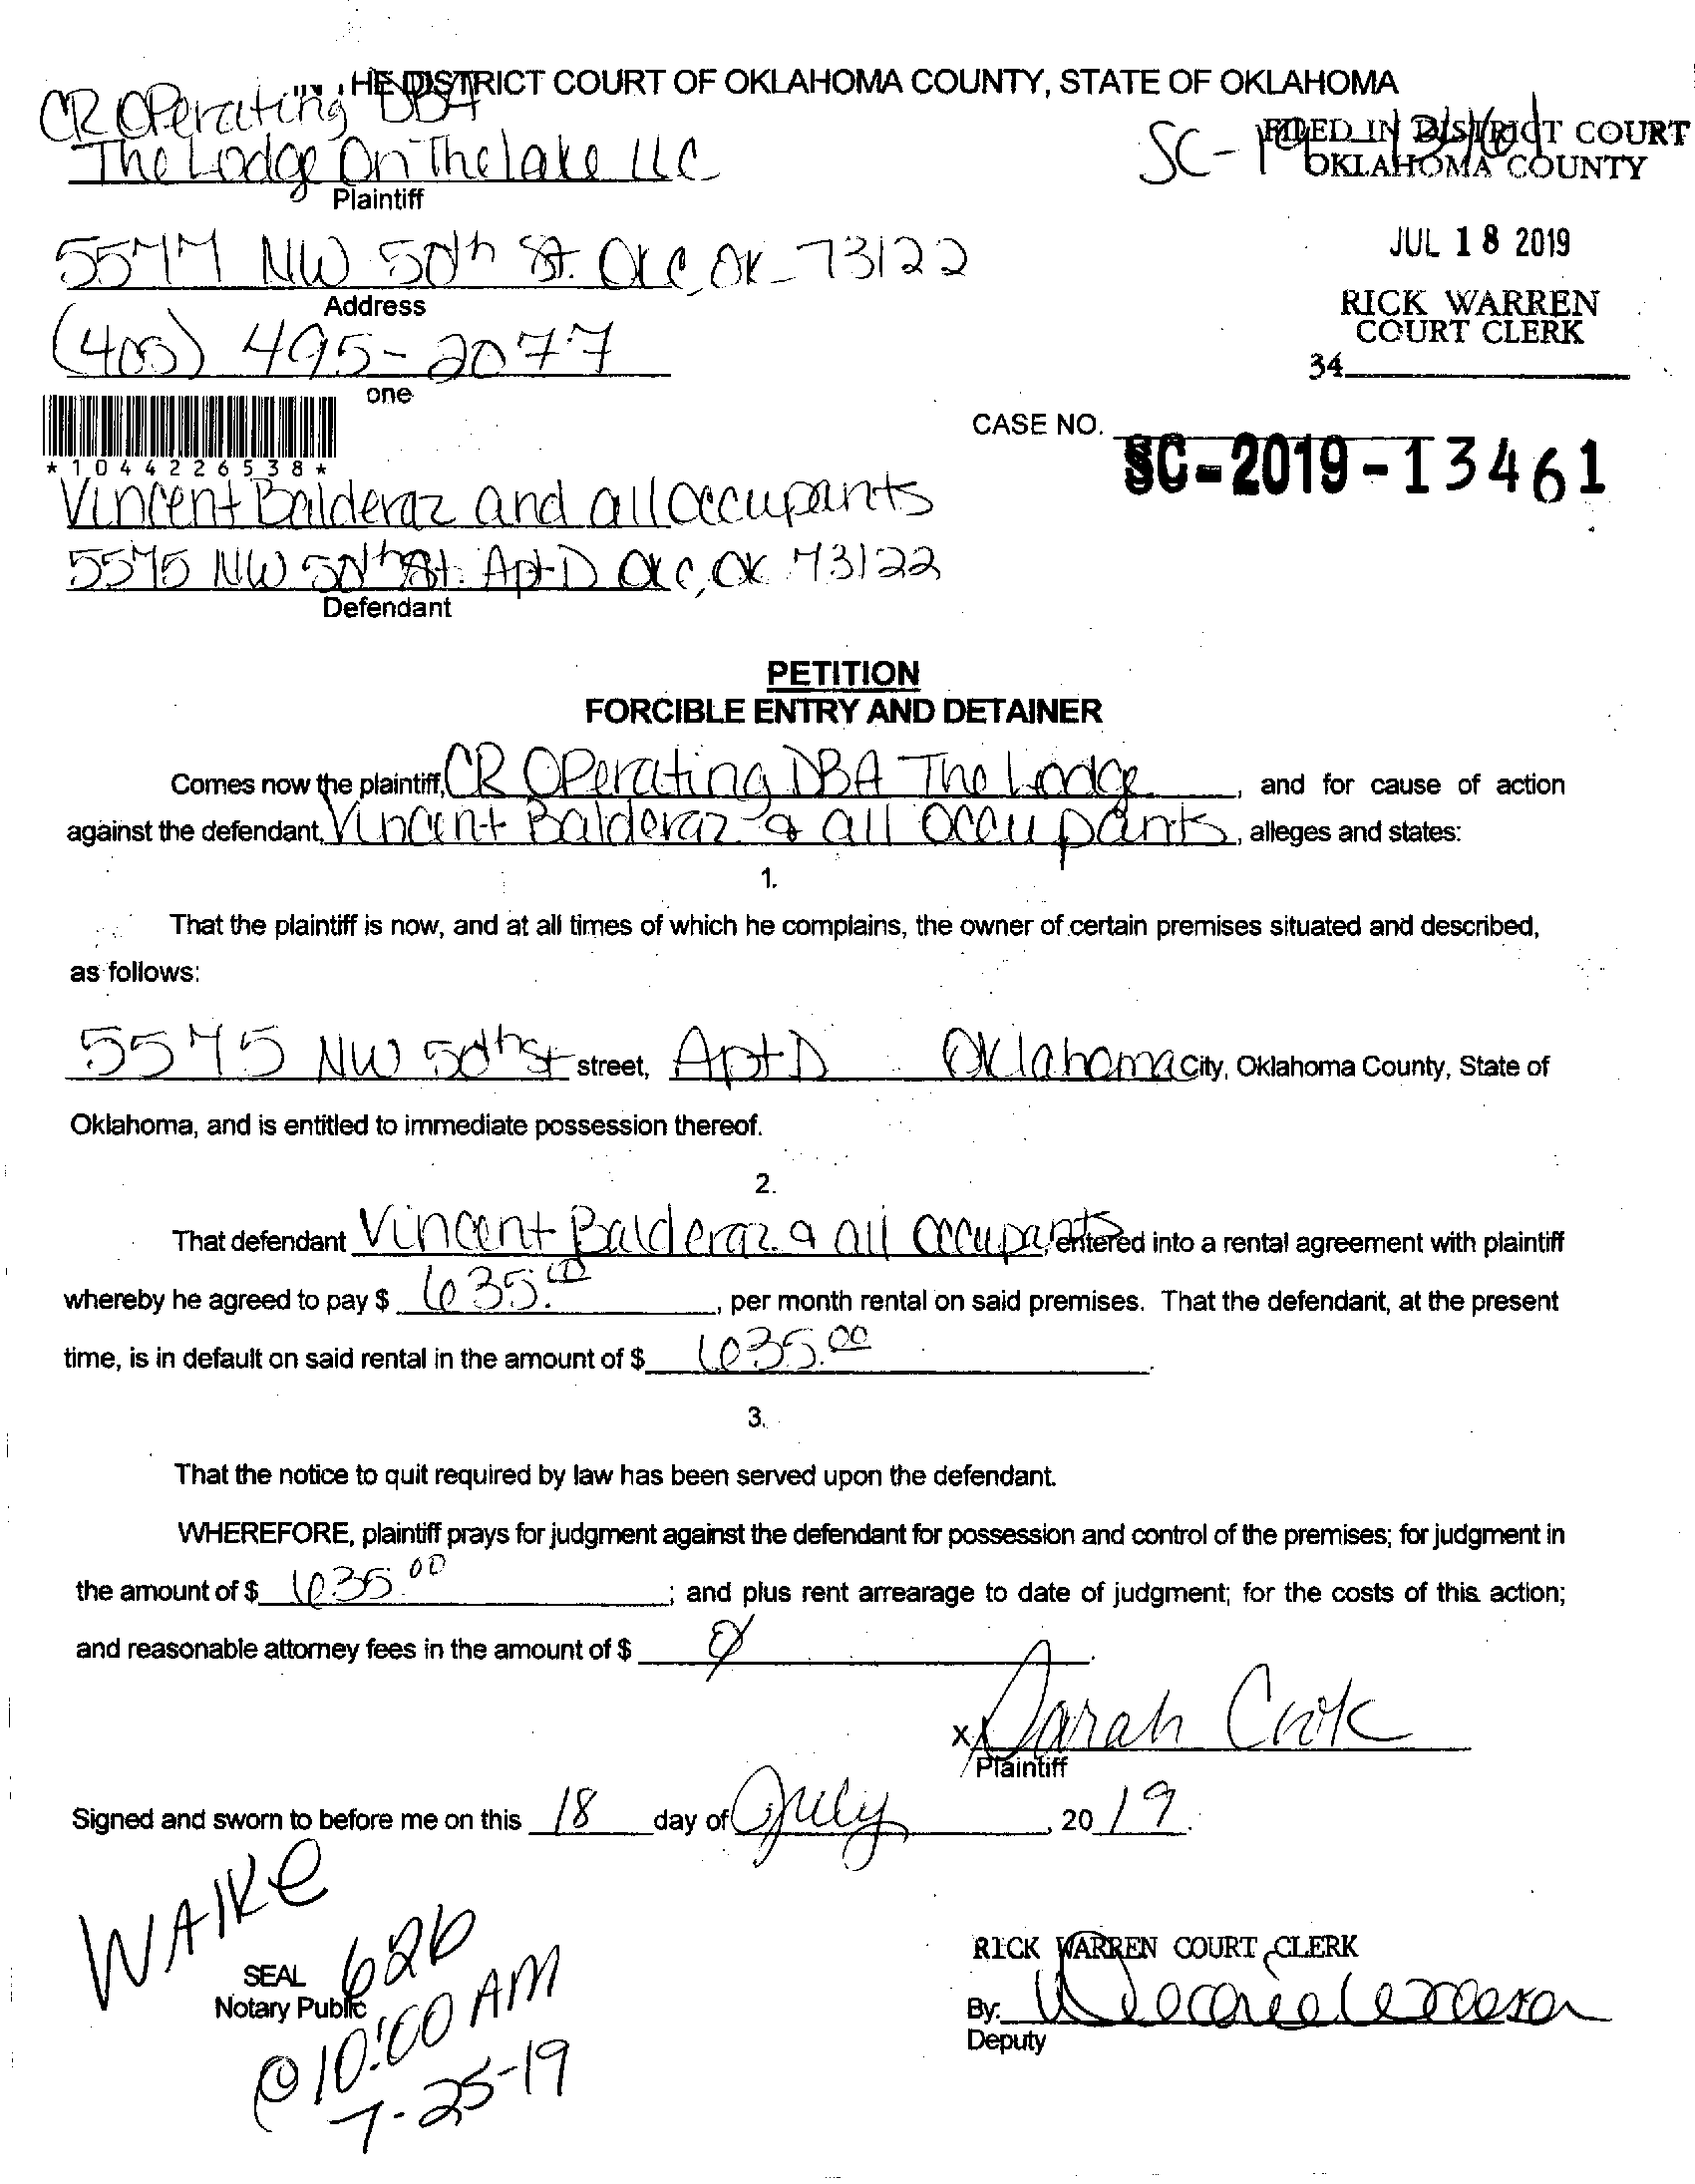 THE DISTRICT COURT OF OKLAHOMA COUNTY, STATE OF OKLAHOMA
CR Operating DBA
The Lodge On The lake LLC
Plaintiff
SC-19-13461
FILED IN DISTRICT COURT
OKLAHOMA COUNTY
JUL 18 2019
RICK WARREN
COURT CLERK
34
5577 NW 50th St. OKC OK 73122
Address
(405) 495-2077
one
*1044226538*
CASE NO.
SC-2019-13461
Vincent Balderaz and all occupants
5575 NW 50th St. Apt D OKC, OK 73122
Defendant
PETITION
FORCIBLE ENTRY AND DETAINER
Comes now the plaintiff, CR Operating DBA The Lodge, and for cause of action
against the defendant, Vincent Balderaz & all occupants, alleges and states:
1.
That the plaintiff is now, and at all times of which he complains, the owner of certain premises situated and described,
as follows:
5575 NW 50th St street, Apt D Oklahoma City, Oklahoma County, State of
Oklahoma, and is entitled to immediate possession thereof.
2.
That defendant Vincent Balderaz & all occupants entered into a rental agreement with plaintiff
whereby he agreed to pay $ 635.00, per month rental on said premises. That the defendant, at the present
time, is in default on said rental in the amount of $ 635.00.
3.
That the notice to quit required by law has been served upon the defendant.
WHEREFORE, plaintiff prays for judgment against the defendant for possession and control of the premises; for judgment in
the amount of $ 635.00; and plus rent arrearage to date of judgment; for the costs of this action;
and reasonable attorney fees in the amount of $ Ø.
X Sarah Cook
Plaintiff
Signed and sworn to before me on this 18 day of July, 2019.
WAIKE
626
SEAL
Notary Public
@ 10:00 AM
7-25-19
RICK WARREN COURT CLERK
By:
Deputy